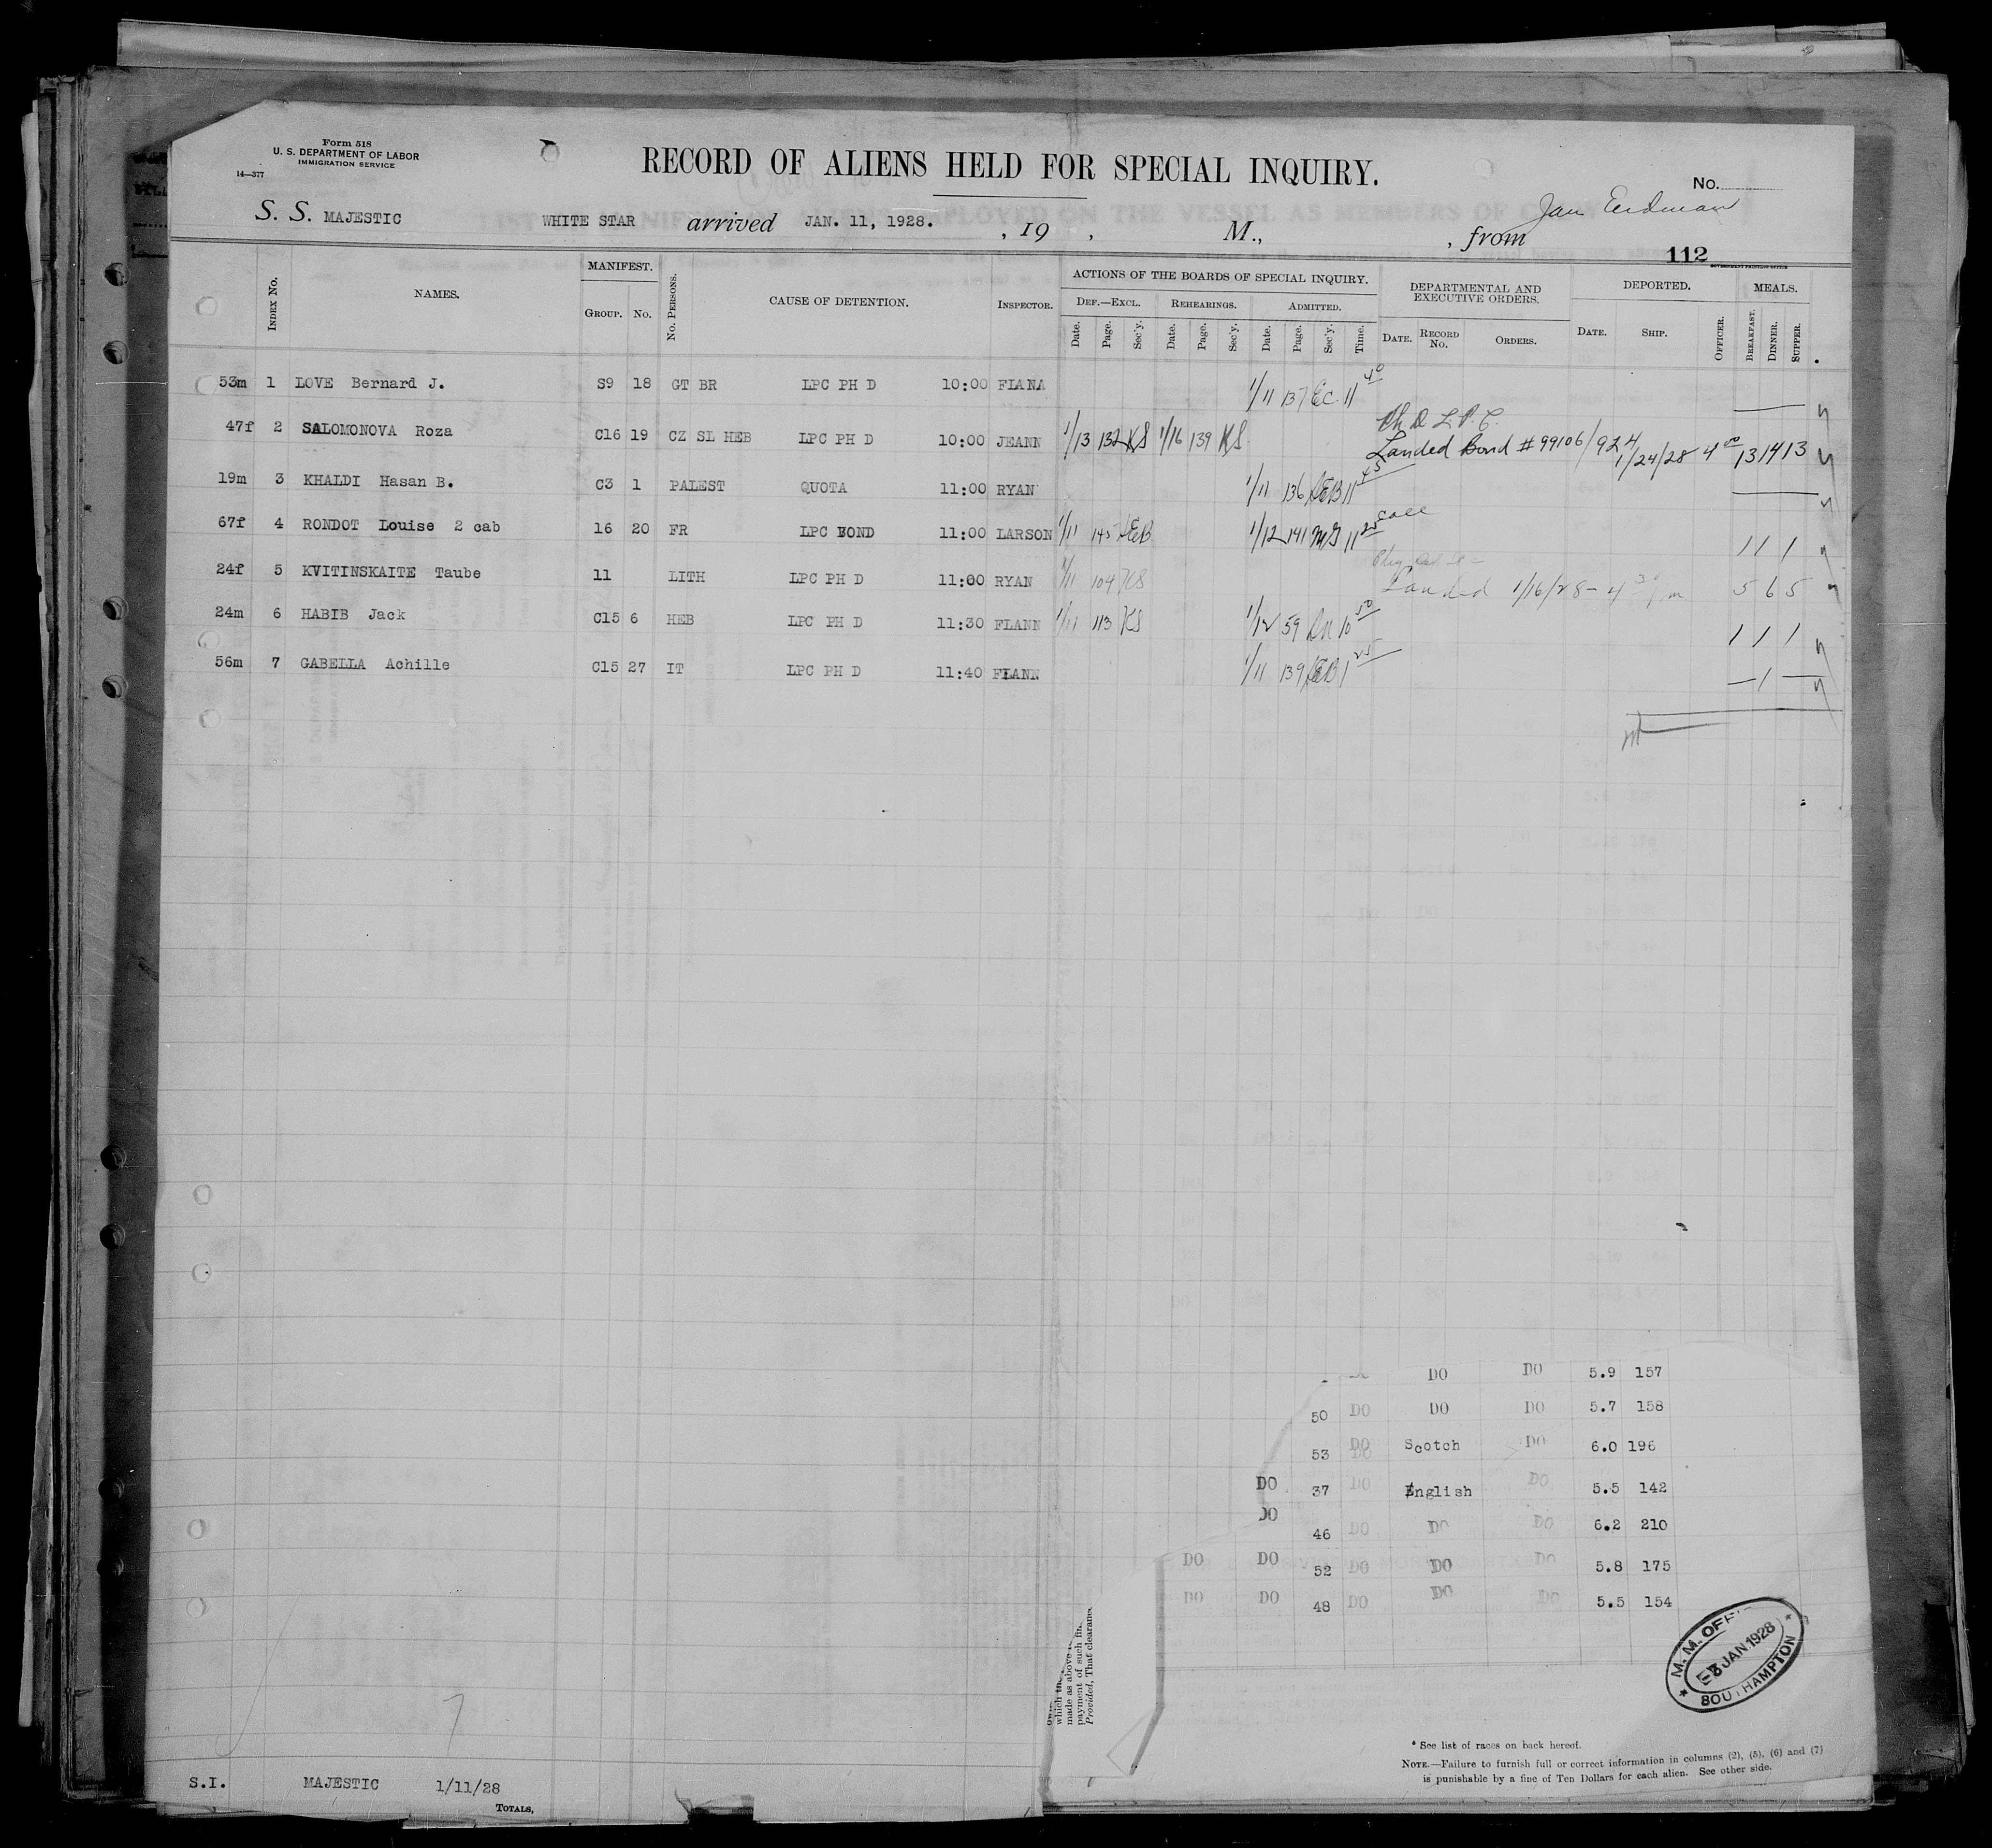 Form 518
U. S. DEPARTMENT OF LABOR
IMMIGRATION SERVICE
14—377
RECORD OF ALIENS HELD FOR SPECIAL INQUIRY.
No.
S. S. MAJESTIC WHITE STAR arrived JAN. 11, 1928. , 19 , M., , from Jan
112
GOVERNMENT PRINTING OFFICE
INDEX NO. NAMES. MANIFEST. GROUP. NO. NO. PERSONS. CAUSE OF DETENTION. INSPECTOR. ACTIONS OF THE BOARDS OF SPECIAL INQUIRY. DEPARTMENTAL AND EXECUTIVE ORDERS. DEPORTED. MEALS.
DEF.—EXCL. REHEARINGS. ADMITTED.
Date. Page. Sec'y. Date. Page. Sec'y. Date. Page. Sec'y. Time. DATE. RECORD No. ORDERS. DATE. SHIP. OFFICER. BREAKFAST. DINNER. SUPPER.
53m 1 LOVE Bernard J. S9 18 GT BR LPC PH D 10:00 FLANA 1/11 137 EC 11 40
Ph D L.P.C.
47f 2 SALOMONOVA Roza C16 19 CZ SL HEB LPC PH D 10:00 JEANN 1/13 132 KS 1/16 139 KS Landed Bond #99106/924 1/24/28 4 00 13 14 13
19m 3 KHALDI Hasan B. C3 1 PALEST QUOTA 11:00 RYAN 1/11 136 AEB 11 45
67f 4 RONDOT Louise 2 cab 16 20 FR LPC BOND 11:00 LARSON 1/11 145 AEB 1/12 141 MG 11 25 1 1 1
24f 5 KVITINSKAITE Taube 11 LITH LPC PH D 11:00 RYAN 1/11 104 KS Landed 1/16/28 - 4 30 pm 5 6 5
24m 6 HABIB Jack C15 6 HEB LPC PH D 11:30 FLANN 1/11 113 KS 1/12 59 10 50 1 1 1
56m 7 GABELLA Achille C15 27 IT LPC PH D 11:40 FLANN 1/11 139 AEB 1 25 — 1 —
DO DO 5.9 157
50 DO DO DO 5.7 158
53 DO Scotch DO 6.0 196
DO 37 DO English DO 5.5 142
DO 46 DO DO DO 6.2 210
DO DO 52 DO DO DO 5.8 175
DO DO 48 DO DO DO 5.5 154
M. M. OFFI
JAN 1928
SOUTHAMPTON
made as above
payment of such fin
Provided, That clearance
7
* See list of races on back hereof.
NOTE.—Failure to furnish full or correct information in columns (2), (5), (6) and (7)
is punishable by a fine of Ten Dollars for each alien. See other side.
S.I. MAJESTIC 1/11/28
TOTALS,